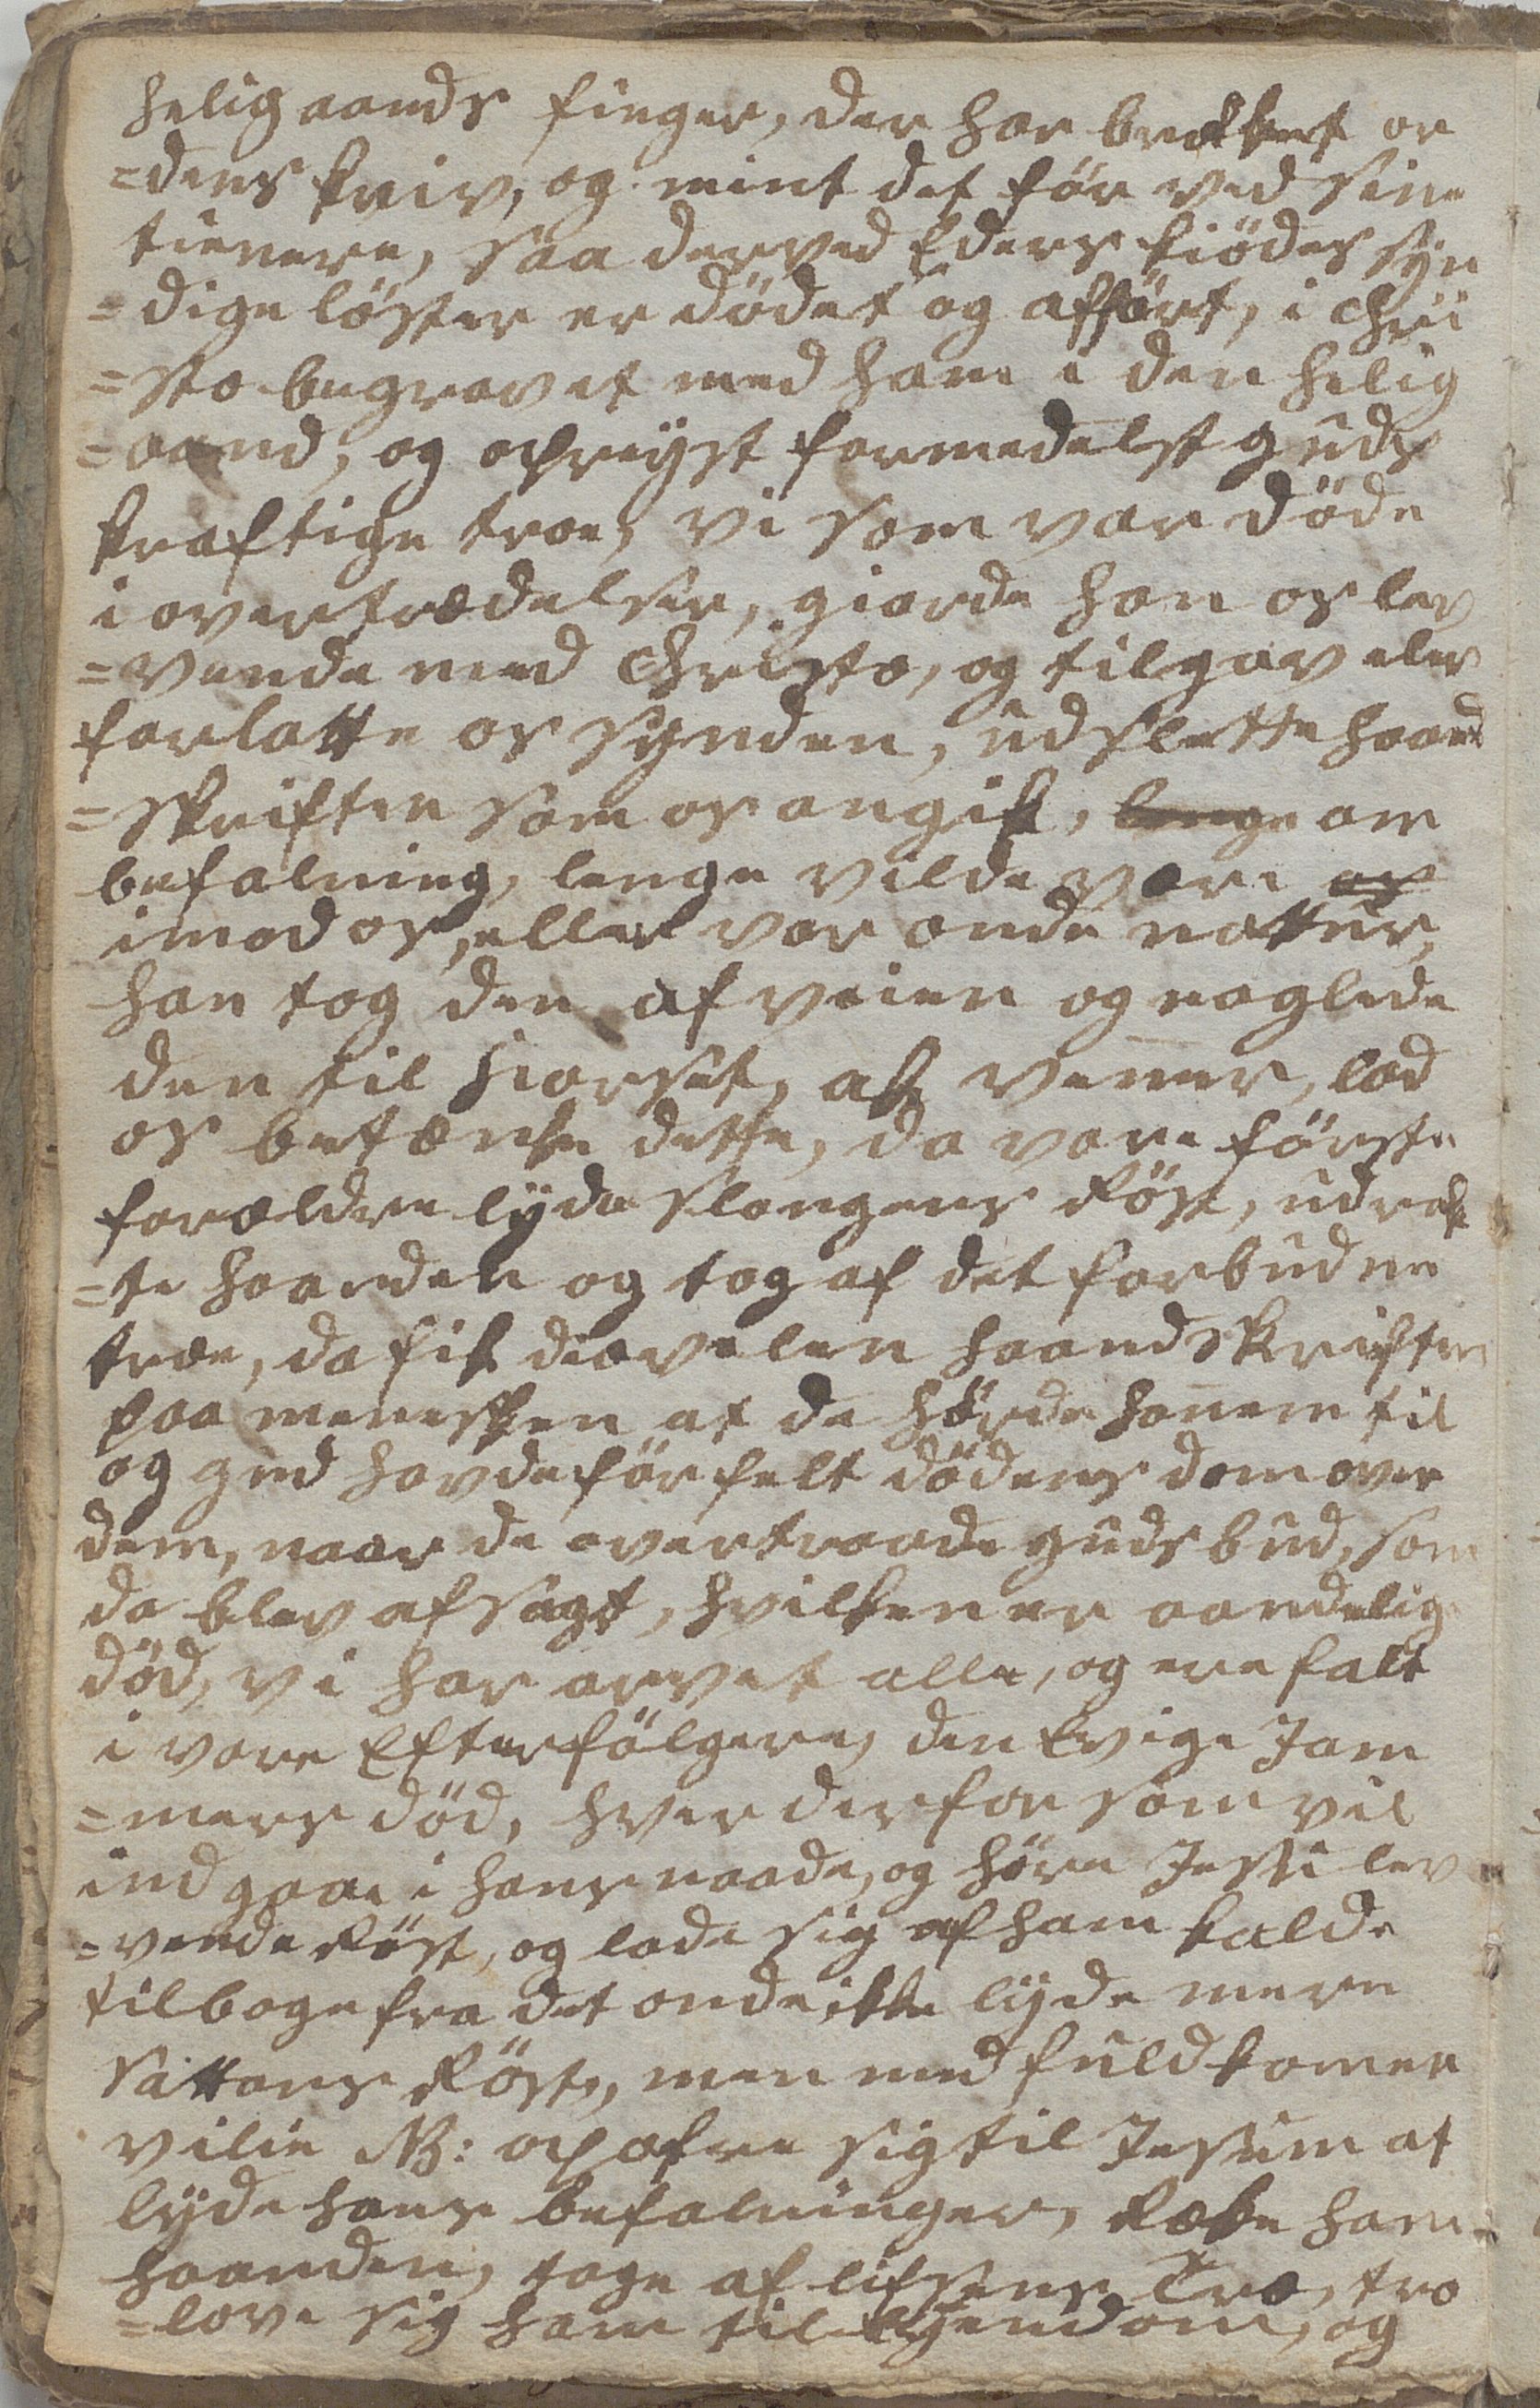 helig aands finger, der har brukket or
=dens kniv, og mint det för ved sine
tienere, saa derved Eders kiödes syn
=dige löster er dödet og afført, i Chri
=sto begravet med ham i den hellig
=aand, og opreyst formedelst guds
kraftige troe, vi som var döde
i overtrædelser, giorde han os lev
=vende med Christo, og tilgav eler
forlatte os synden, udslette haand
=skriften som os angik, lenge om
befalning, lenge vilde være os
imod os, eller vor onde nattur,
han tog den af veien og naglede
den til korset, ak venner, lad
os betænke dette, da vore förste
forældre lyde slangens Röst, udrak
=te haanden og tog af det forbudne
træe, da fik diævelen haandskriften
paa menesken at de hörde hannem til
og gud havde för felt dödens dom over
dem, naar de overtraade guds bud, som
da blev afsagt, hvilken er aandelig
död, vi har arvet alle, og ere falt
i vore Efterfölgere, den Evige Jam
=mers död, hver derfor som vil
indgaae i hans naade, og höre Jesu lev
=vende Röst, og lade sig af ham kalde
tilbage fra det onde ikke lyde mere
Sattans Röst, men med fuldkomen
vilie NB: opofre sig til Jesum at
lyde hans befalninger, Række ham
haanden, tage af lifsens Træ, tro
=love sig ham til Ejendom, og